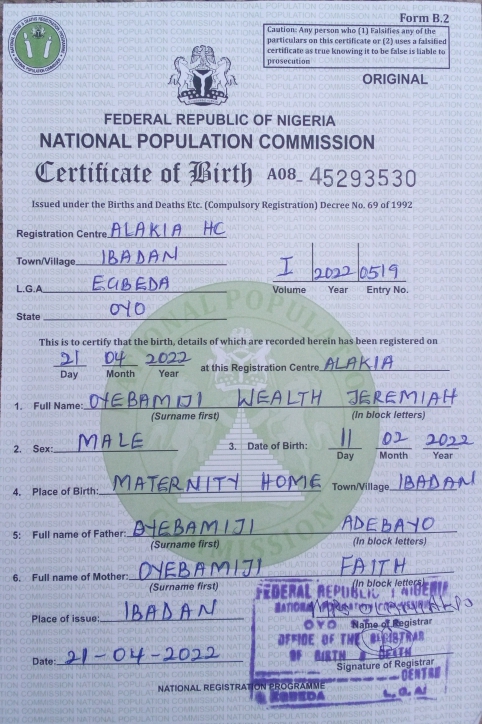 Form B.2
Caution: Any person who (1) Falsifies any of the
particulars on this certificate or (2) uses a falsified
certificate as true knowing it to be false is liable to
prosecution
ORIGINAL
FEDERAL REPUBLIC OF NIGERIA
NATIONAL POPULATION COMMISSION
Certificate of Birth A08- 45293530
Issued under the Births and Deaths Etc. (Compulsory Registration) Decree No. 69 of 1992
Registration Centre ALAKIA HC
Town/Village IBADAN
L.G.A EGBEDA
State OYO
I 2022 0519
Volume Year Entry No.
This is to certify that the birth, details of which are recorded herein has been registered on
21 04 2022 at this Registration Centre ALAKIA
Day Month Year
1. Full Name: OYEBAMIJI WEALTH JEREMIAH
(Surname first) (In block letters)
2. Sex: MALE 3. Date of Birth: 11 02 2022
Day Month Year
4. Place of Birth: MATERNITY HOME Town/Village IBADAN
5: Full name of Father: OYEBAMIJI ADEBAYO
(Surname first) (In block letters)
6. Full name of Mother: OYEBAMIJI FAITH
(Surname first) (In block letters)
Place of issue: IBADAN
Name of Registrar
Date: 21-04-2022
Signature of Registrar
FEDERAL REPUBLIC NIGERIA
OYO
OFFICE OF THE REGISTRAR
OF BIRTH & DEATH
CENTRE
EGBEDA L.G.A
NATIONAL REGISTRATION PROGRAMME